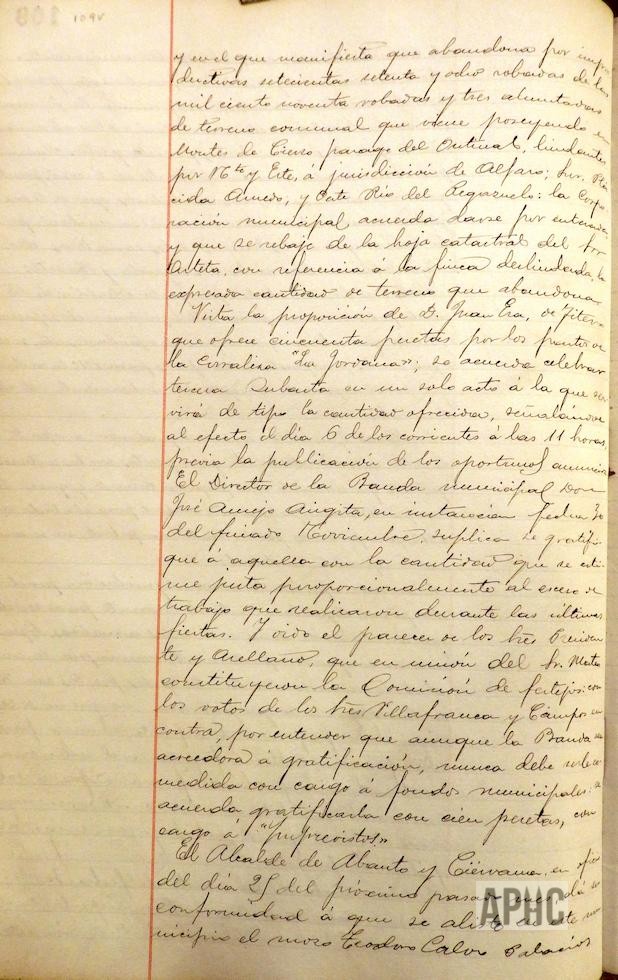 109v
y en el que manifiesta que abandona por impro
ductivas setecientas setenta y ocho robadas de las
mil ciento noventa robadas y tres almutadas
de terreno comunal que viene poseyendo en
Montes de Cierzo parage del Ontinal, lindantes
por Nte y Este, á jurisdicción de Alfaro; Sur. Plá
cida Amedo, y Oeste Río del Regazuelo: la Corpo
ración municipal acuerda darse por enterada
y que se rebaje de la hoja catastral del Sr.
Arteta, con referencia á la finca deslindada, la
expresada cantidad de terreno que abandona
Vista la proposición de D. Juan Era, de Fitero
que ofrece cincuenta pesetas por los pastos de
la corraliza "La Jordana"; se acuerda celebrar
tercera subasta en un solo acto á la que ser
virá de tipo la cantidad ofrecida, señalándose
al efecto el día 6 de los corrientes á las 11 horas
previa la publicación de los oportunos anuncios
El Director de la Banda municipal Don
José Angita, en instancia fecha 30
del finado Noviembre, suplica se gratifi
que á aquella con la cantidad que se esti
me justa proporcionalmente al exceso de
trabajo que realizaron durante las últimas
fiestas. Y oido el parecer de los Sres Presiden
te y Arellano, que en unión del Sr. Martes
constituyeron la Comisión de festejos: con
los votos de los Sres Villafranca y Campos en
contra, por entender que aunque la Banda sea
acreedora á gratificación, nunca debe serle
medida con cargo á fondos municipales: se
acuerda gratificarla con cien pesetas, con
cargo a "Imprevistos"
El Alcalde de Abanto y Ciérvana, en oficio
del día 25 del próximo pasado mes, dá su
conformidad á que se aliste de este mu
nicipio el mozo Teodoro Calvo Palacios
APHC